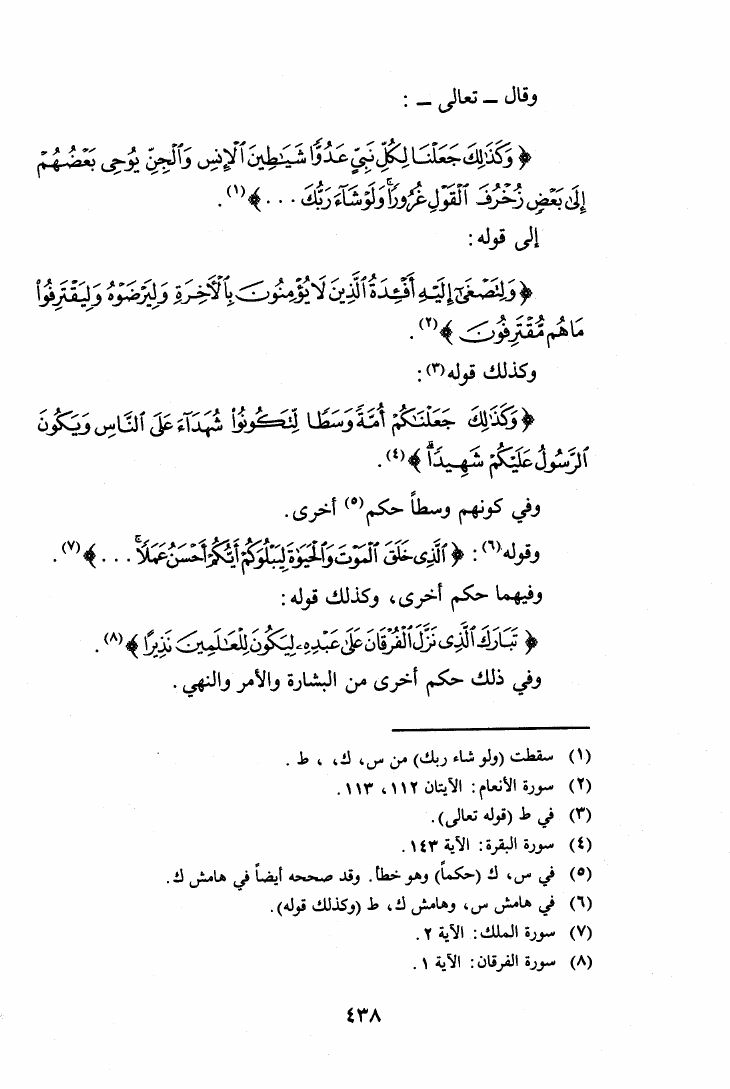 وقال – تعالى – :
﴿ وَكَذَٰلِكَ جَعَلْنَا لِكُلِّ نَبِيٍّ عَدُوًّا شَيَٰطِينَ ٱلْإِنسِ وَٱلْجِنِّ يُوحِى بَعْضُهُمْ
إِلَىٰ بَعْضٍ زُخْرُفَ ٱلْقَوْلِ غُرُورًا ۚ وَلَوْ شَآءَ رَبُّكَ . . . ﴾(١) .
إلى قوله :
﴿ وَلِتَصْغَىٰٓ إِلَيْهِ أَفْـِٔدَةُ ٱلَّذِينَ لَا يُؤْمِنُونَ بِٱلْأَخِرَةِ وَلِيَرْضَوْهُ وَلِيَقْتَرِفُوا۟
مَا هُم مُّقْتَرِفُونَ ﴾(٢) .
وكذلك قوله(٣) :
﴿ وَكَذَٰلِكَ جَعَلْنَٰكُمْ أُمَّةً وَسَطًا لِّتَكُونُوا۟ شُهَدَآءَ عَلَى ٱلنَّاسِ وَيَكُونَ
ٱلرَّسُولُ عَلَيْكُمْ شَهِيدًا ۗ ﴾(٤) .
وفي كونهم وسطاً حكم(٥) أخرى .
وقوله(٦) : ﴿ ٱلَّذِى خَلَقَ ٱلْمَوْتَ وَٱلْحَيَوٰةَ لِيَبْلُوَكُمْ أَيُّكُمْ أَحْسَنُ عَمَلًا ۚ . . . ﴾(٧) .
وفيهما حكم أخرى، وكذلك قوله :
﴿ تَبَارَكَ ٱلَّذِى نَزَّلَ ٱلْفُرْقَانَ عَلَىٰ عَبْدِهِۦ لِيَكُونَ لِلْعَٰلَمِينَ نَذِيرًا ﴾(٨) .
وفي ذلك حكم أخرى من البشارة والأمر والنهي .
(١) سقطت (ولو شاء ربك) من س، ك، ، ط .
(٢) سورة الأنعام : الآيتان ١١٢ ، ١١٣ .
(٣) في ط (قوله تعالى) .
(٤) سورة البقرة : الآية ١٤٣ .
(٥) في س، ك (حكماً) وهو خطأ . وقد صححه أيضاً في هامش ك .
(٦) في هامش س، وهامش ك، ط (وكذلك قوله) .
(٧) سورة الملك : الآية ٢ .
(٨) سورة الفرقان : الآية ١ .
٤٣٨